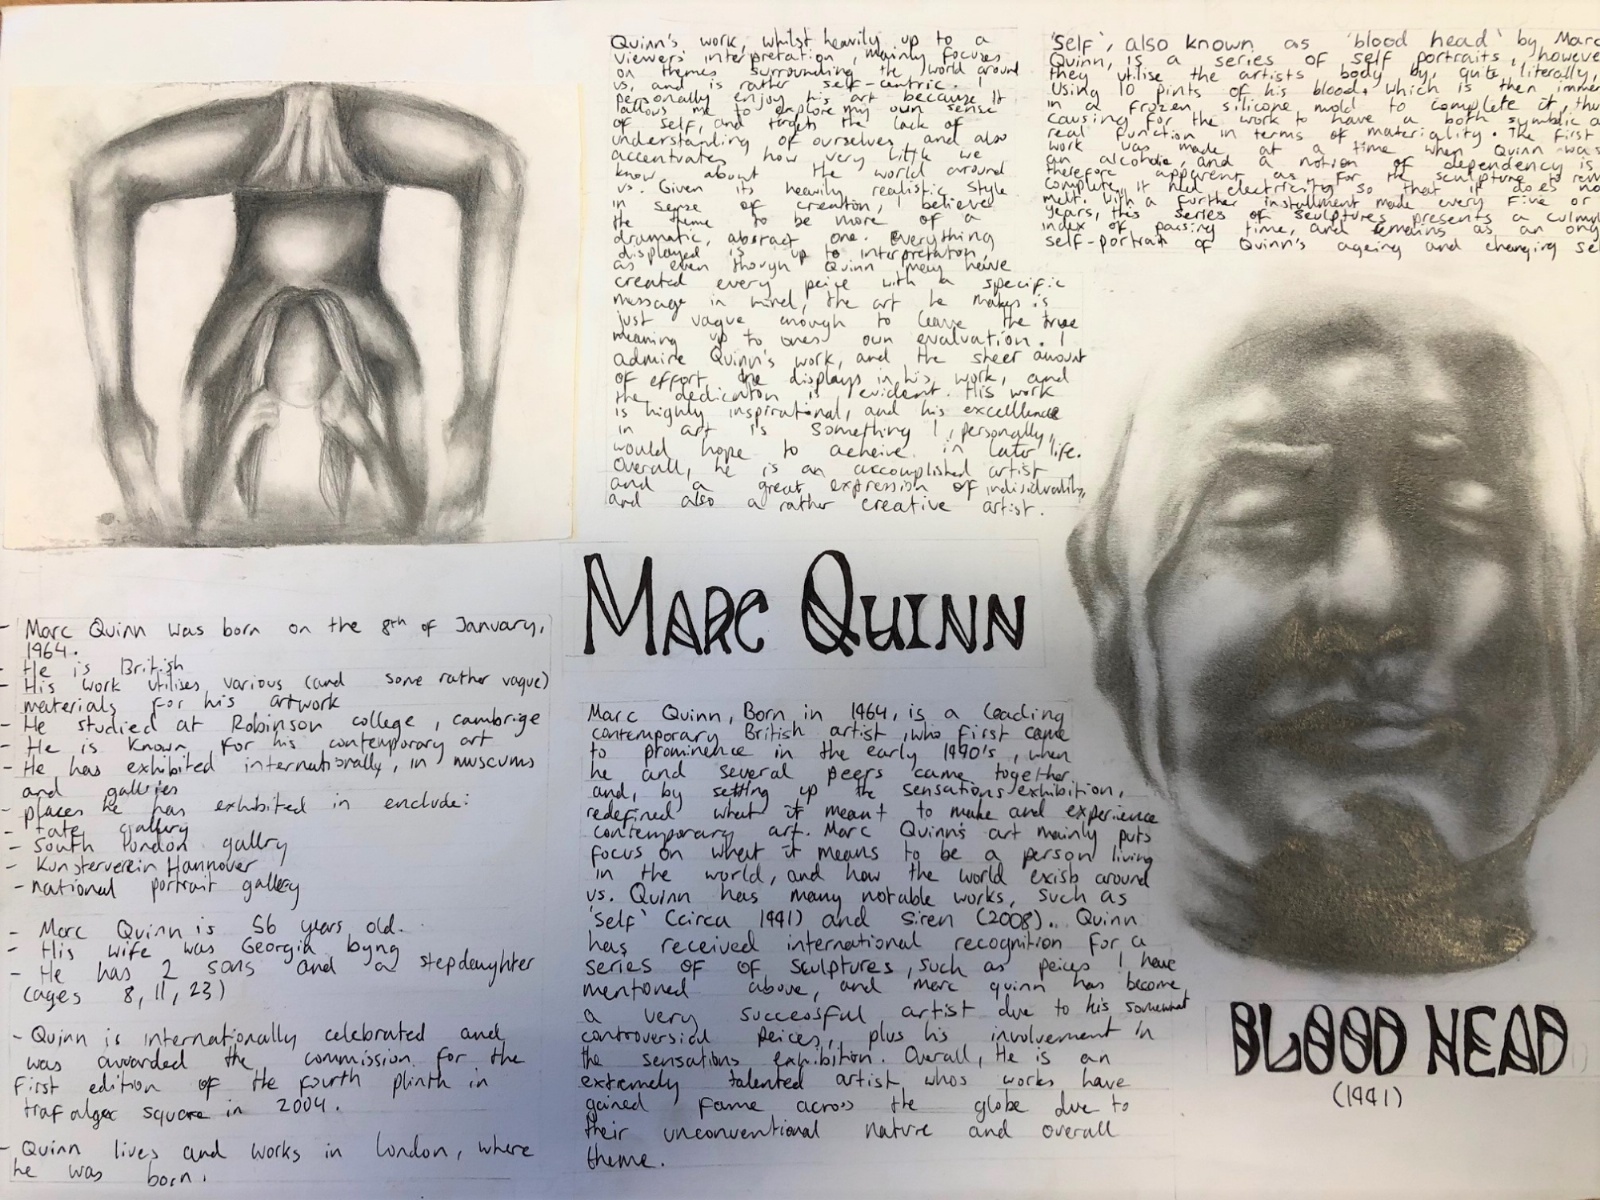 Quinn's work, whilst heavily up to a
viewers interpretation, mainly focuses
on themes surrounding the world around
us, and is rather self-centric. I
personally enjoy his art because it
allows me to explore my own sense
of self, and targets the lack of
understanding of ourselves and also
accentuates how very little we
know about the world around
us. Given its heavily realistic style
in sense of creation, I believe
the theme to be more of a
dramatic, abstract one. Everything
displayed is up to interpretation,
as even though Quinn may have
created every peice with a specific
message in mind, the art he makes is
just vague enough to leave the true
meaning up to ones own evaluation. I
admire Quinn's work, and the sheer amount
of effort he displays in his work, and
the dedication is evident. His work
is highly inspirational, and his excelllence
in art is something I, personally,
would hope to acheive in later life.
Overall, he is an accomplished artist
and a great expression of individuality,
and also a rather creative artist.
'Self', also known as 'blood head' by Marc
Quinn, is a series of self portraits, however
they utilise the artists body by, quite literally,
using 10 pints of his blood, which is then immer
in a frozen silicone mold to complete it, thu
causing for the work to have a both symbolic a
real function in terms of materiality. The first
work was made at a time when Quinn was
an alcoholic, and a notion of dependency is
therefore apparent as, for the sculpture to rem
complete, it had electricity so that it does no
melt. With a further installment made every five or
years, this series of sculptures presents a cumul
index of passing time, and remains as an ong
self-portrait of Quinn's ageing and changing se
MARC QUINN
- Marc Quinn was born on the 8th of January,
1964.
- He is British
- His work utilises various (and some rather vague)
materials for his artwork
- He studied at Robinson college, cambrige
- He is known for his contemporary art
- He has exhibited internationally, in museums
and galleries
- places he has exhibited in enclude:
- Tate gallery
- South london gallry
- Kunsterverein Hannover
- national portrait gallery
- Marc Quinn is 56 years old.
- His wife was Georgia byng
- He has 2 sons and a stepdaughter
(ages 8, 11, 23)
- Quinn is internationally celebrated and
was awarded the commission for the
first edition of the fourth plinth in
trafalger square in 2004.
- Quinn lives and works in london, where
he was born.
Marc Quinn, Born in 1964, is a leading
contemporary British artist, who first came
to prominence in the early 1990's, when
he and several peers came together
and, by setting up the sensations exhibition,
redefined what it meant to make and experience
contemporary art. Marc Quinn's art mainly puts
focus on what it means to be a person living
in the world, and how the world exists around
us. Quinn has many notable works, such as
'self' (circa 1991) and Siren (2008). Quinn
has received international recognition for a
series of of sculptures, such as peices I have
mentioned above, and marc quinn has become
a very successful artist due to his somewhat
controversial peices, plus his involvement in
the sensations exhibition. Overall, He is an
extremely talented artist whos works have
gained fame across the globe due to
their unconventional nature and overall
theme.
BLOOD HEAD
(1991)